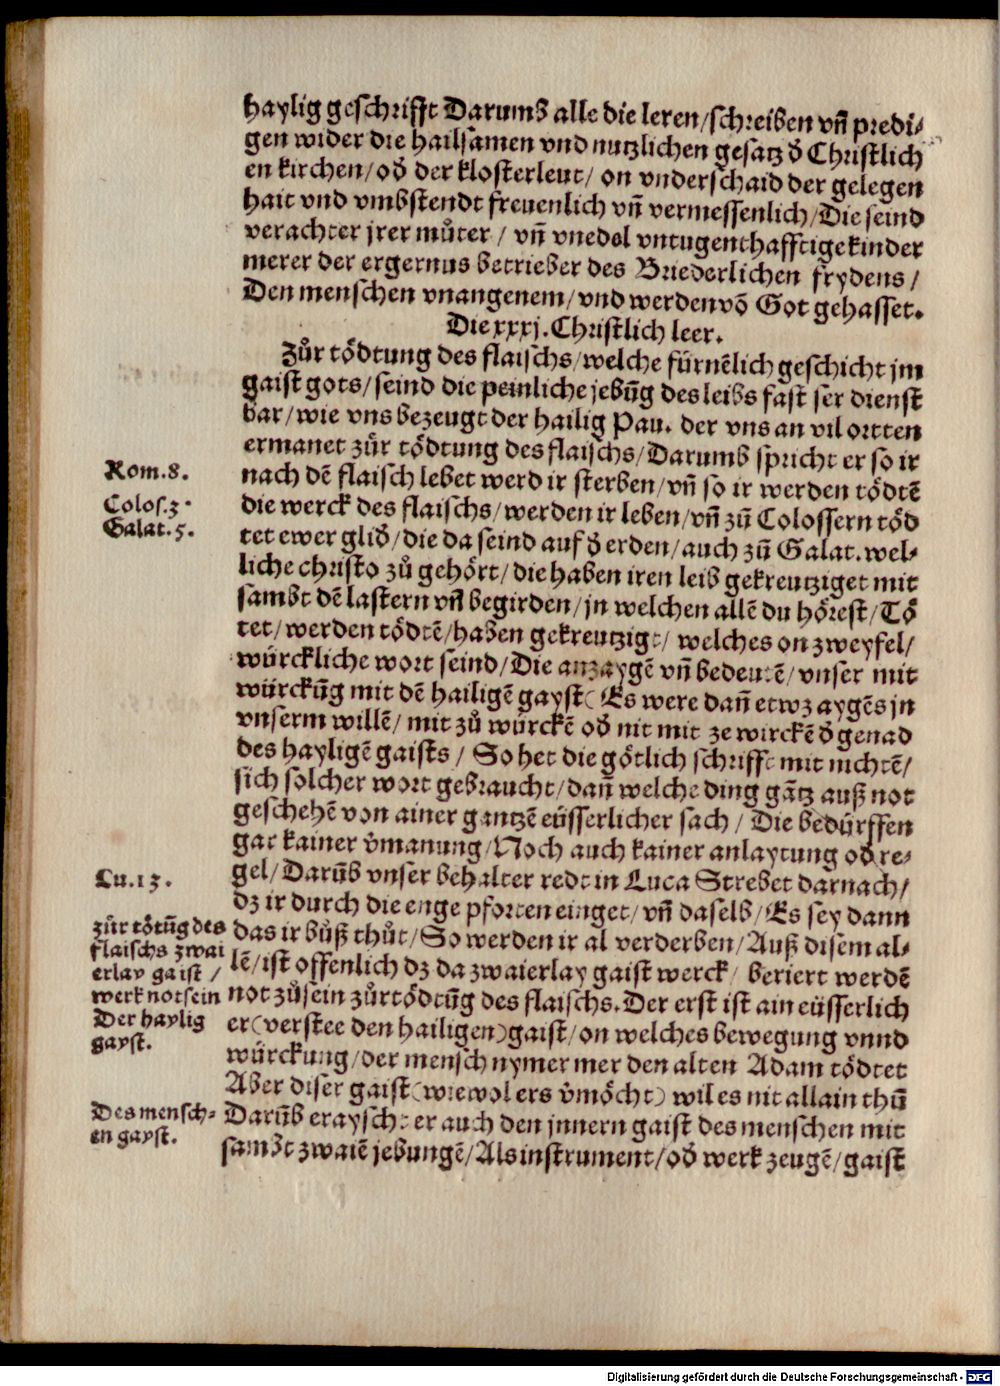 haylig geschrifft Darumb alle die leren/schreiben vñ predi/
gen wider die hailsamen vnd nutzlichen gesatz d̄ Christlich
en kirchen/od̄ der klosterleut/ on vnderschaid der gelegen
hait vnd vmbstendt freuenlich vñ vermessenlich/Die seind
verachter jrer můter / vñ vnedol vntugenthafftige kinder
merer der ergernus betrieber des Briederlichen frydens /
Den menschen vnangenem/vnd werden võ Got gehasset.
Die xxxj. Christlich leer.
Zůr tödtung des flaischs/welche fürnẽlich geschicht jm
gaist gots/seind die peinliche jebũg des leibs fast ser dienst
bar/wie vns bezeugt der hailig Pau. der vns an vil ortten
ermanet zůr tödtung des flaischs/Darumb spricht er so ir
nach dẽ flaisch lebet werd ir sterben/vñ so ir werden tödtẽ
die werck des flaischs/werden ir leben/vñ zů Colossern töd
tet ewer glid̄/die da seind auf d̄ erden/auch zů Galat. wel-
liche christo zů gehört/die haben iren leib gekreutziget mit
sambt dẽ lastern vñ begirden/jn welchen allẽ du hörest/Tö
tet/werden tödtẽ/haben gekreutzigt/ welches on zweyfel/
würckliche wort seind/Die anzaygẽ vñ bedeutẽ/vnser mit
würckũg mit dẽ hailigẽ gayst( Es were dañ etwz aygẽs jn
vnserm willẽ/ mit zů würckẽ od̄ nit mit ze wirckẽ d̄ genad
des hayligẽ gaists / So het die götlich schrifft mit nichtẽ/
sich solcher wort gebraucht/dañ welche ding gãtz auß not
geschehẽ von ainer gantzẽ eüsserlicher sach / Die bedürffen
gar kainer v̄manung/Noch auch kainer anlaytung od̄ re-
gel/Darũb vnser behalter redt in Luca Strebet darnach/
dz ir durch die enge pforten einget/vñ daselb/Es sey dann
das ir bůß thůt/So werden ir al verderben/Auß disem al-
lẽ/ist offenlich dz da zwaierlay gaist werck/ beriert werdẽ
not zůsein zůrtödtũg des flaischs. Der erst ist ain eüsserlich
er(verstee den hailigen)gaist/on welches bewegung vnnd
würckung/der mensch nymer mer den alten Adam tödtet
Aber diser gaist(wiewol ers v̄möcht) wil es nit allain thũ
Darũb erayscht er auch den jnnern gaist des menschen mit
sambt zwaiẽ jebungẽ/Als instrument/od̄ werk zeugẽ/gaist
Rom.8.
Colos.3.
Galat.5.
Lu.13.
zůr tötũg des
flaischs zwai
erlay gaist /
werk notsein
Der haylig
gayst.
Des mensch-
en gayst.
Digitalisierung gefördert durch die Deutsche Forschungsgemeinschaft - DFG